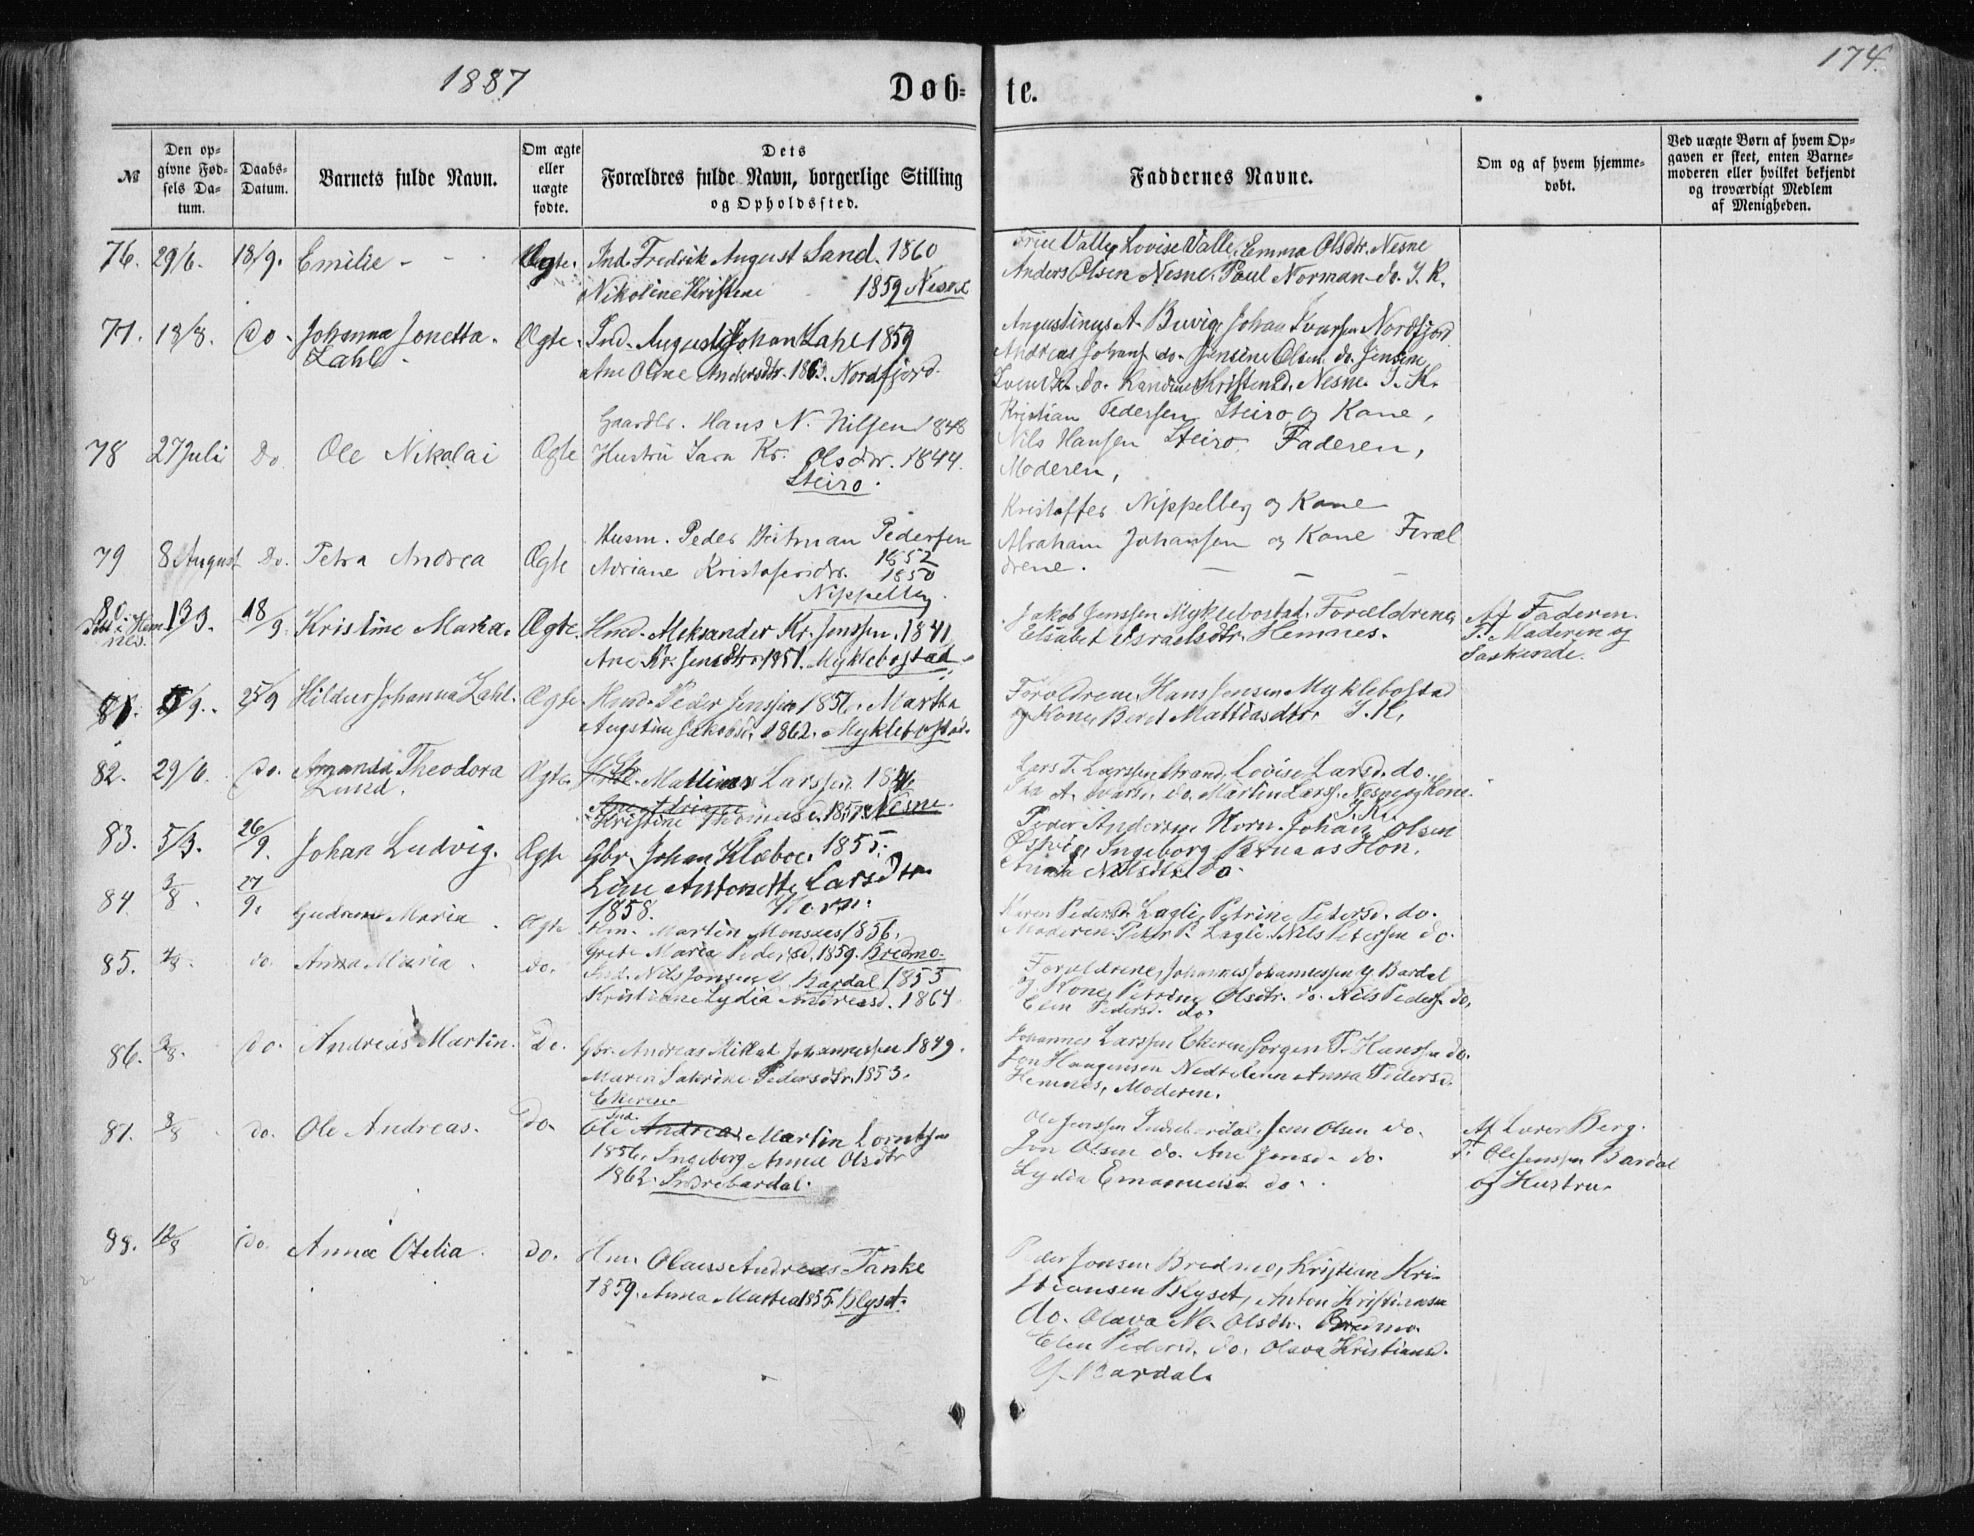 1887
Døb-
te.
174.
№
Den op-
givne Fød-
sels Da-
tum.
Daabs-
Datum.
Barnets fulde Navn.
Om ægte
eller
uægte
fødte.
Dets
Forældres fulde Navn, borgerlige Stilling
og Opholdssted.
Faddernes Navne.
Om og af hvem hjemme-
døbt.
Ved uægte Børn af hvem Op-
gaven er skeet, enten Barne-
moderen eller hvilket bekjendt
og troværdigt Medlem
af Menigheden.
76. 29/6. 18/9. Emilie Ægte. Ind. Fredrik August Sand. 1860
Nikoline Kristine 1859 Nesne
Valle, Lovise Valle, Emma Olsdtr. Nesne
Anders Olsen Nesne. Paul Norman do. I. K.
77. 13/8. Do. Johanna Jonetta. Ægte. Ind. August Johan Zahl 1859
Zahl
Ane Oline Andersdtr. 186. Nordfjord.
Augustinus A. Buvig, Johan Ivarsen Nordfjord
Andreas Johans. do. Jensine Olsen do. Jensine
do. Kristend. Nesne. I. K.
78 27 Juli Do. Ole Nikolai Ægte
Gaardbr. Hans N. Nilsen 1848
Hustru Sara Kr. Olsdtr. 1844.
Steiro.
Kristian Pedersen Steiro og Kone,
Nils Hansen Steiro, Faderen,
Moderen,
79 8 August Do. Petra Andrea Ægte
Husm. Peder Hitman Pedersen
1852
Adriane Kristofersdtr. 1850
Nippelberg.
Kristoffer Nippelberg og Kone
Abraham Johansen og Kone Foræl
drene.
80. 13/3. 18/9. Kristine Marka. Ægte. Hmd. Aleksander Kr. Jenssen. 1841
nes.
Ane Kr. Jensdtr. 1851. Myklebostad.
Jakob Jenssen Myklebostad. Forældrene,
Elisabet Israelsdtr. Hemnes.
Af Faderen.
F. Moderen og
81. /9. 25/9 Hildur Johanna Zahl. Ægte. Hmd. Peder Jenssen 1856. Martha
Augstine Jakobsd. 1862. Myklebostad.
Forældrene, Hans Jensen Myklebostad
og Kone, Beret Mattiasdtr. I. K.
82. 29/6. Do. Amanda Theodora Ægte. Mattias Larssen 184
Lund.
Kristine Thomasd. 185. Nesne.
Lars T. Larssen Strand, Lovise Larsd. do.
do. Martin Larss. Nesne og Kone.
I. K.
83. 5/3. 26/9. Johan Ludvig. Ægte Gbr. Johan Klæboe. 1855.
Line Antonette Larsdtr.
1858. Horn.
Peder Andersen Horn. Johan Olsen
Ingeborg
Anna Nilsdtr. do.
84. 3/8. 27/9. Gudrune Maria. Ægte Hm. Martin Monsæs 1856.
Grete Maria Pedersd. 1859. Bredmo.
Karen Pedersd. Lagli, Petrine Petersd. do.
Moderen. Peter P. Lagli. Nils Petersen do.
85. 4/8. do. Anna Maria. do. Ind. Nils Jonsen Y. Bardal 1855
Kristiane Lydia Andreasd. 1864
Forældrene, Johannes Johannessen Y. Bardal
og Kone, Petrine Olsdtr. do. Nils Peders. do.
Elen Pedersd. do.
86. /8. do. Andreas Martin. Do. Gbr. Andreas Mikal Johannessen 1849.
Maren Pedersdtr. 1853.
Ekeren.
Johannes Larssen Ekeren, Jørgen P. Hansen do.
Jon Haagensen Nedreleiren Anna Pedersd.
Hemnes, Moderen.
87. /8 do. Ole Andreas. do. Ind.
Ole Andreas Martin Lorntsen
1856. Ingeborg Anna Olsdtr
1862. Indrebardal.
Ole Jenssen Indrebardal, Jens Olsen do.
Jon Olsen do. Ane Jensd. do.
Lydia do.
Af Lærer Berg.
F. Ole Jenssen Bardal
og Hustru.
88. 12/8 do. Anna Otelia. do. Hm. Olaus Andreas Tanke
1859. Anna Martea 1855. Blyset.
Peder Jonsen Bredmo, Kristian Kri-
stiansen Blyset, Anton Kristiansen
do. Olava M. Olsdtr. Bredmo.
Elen Pedersd. do. Olava Kristiansd.
Y. Bardal.